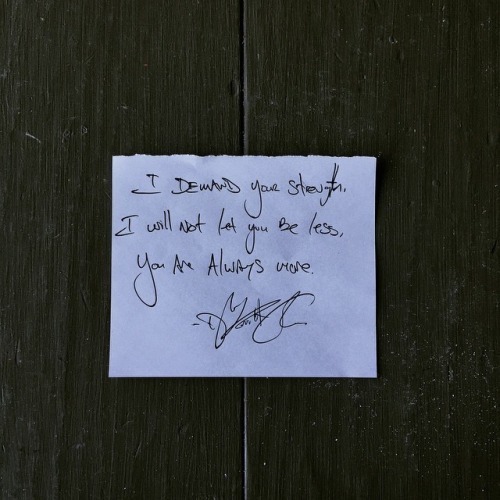 I DEMAND your strength.
I will not let you Be less,
You Are Always more.